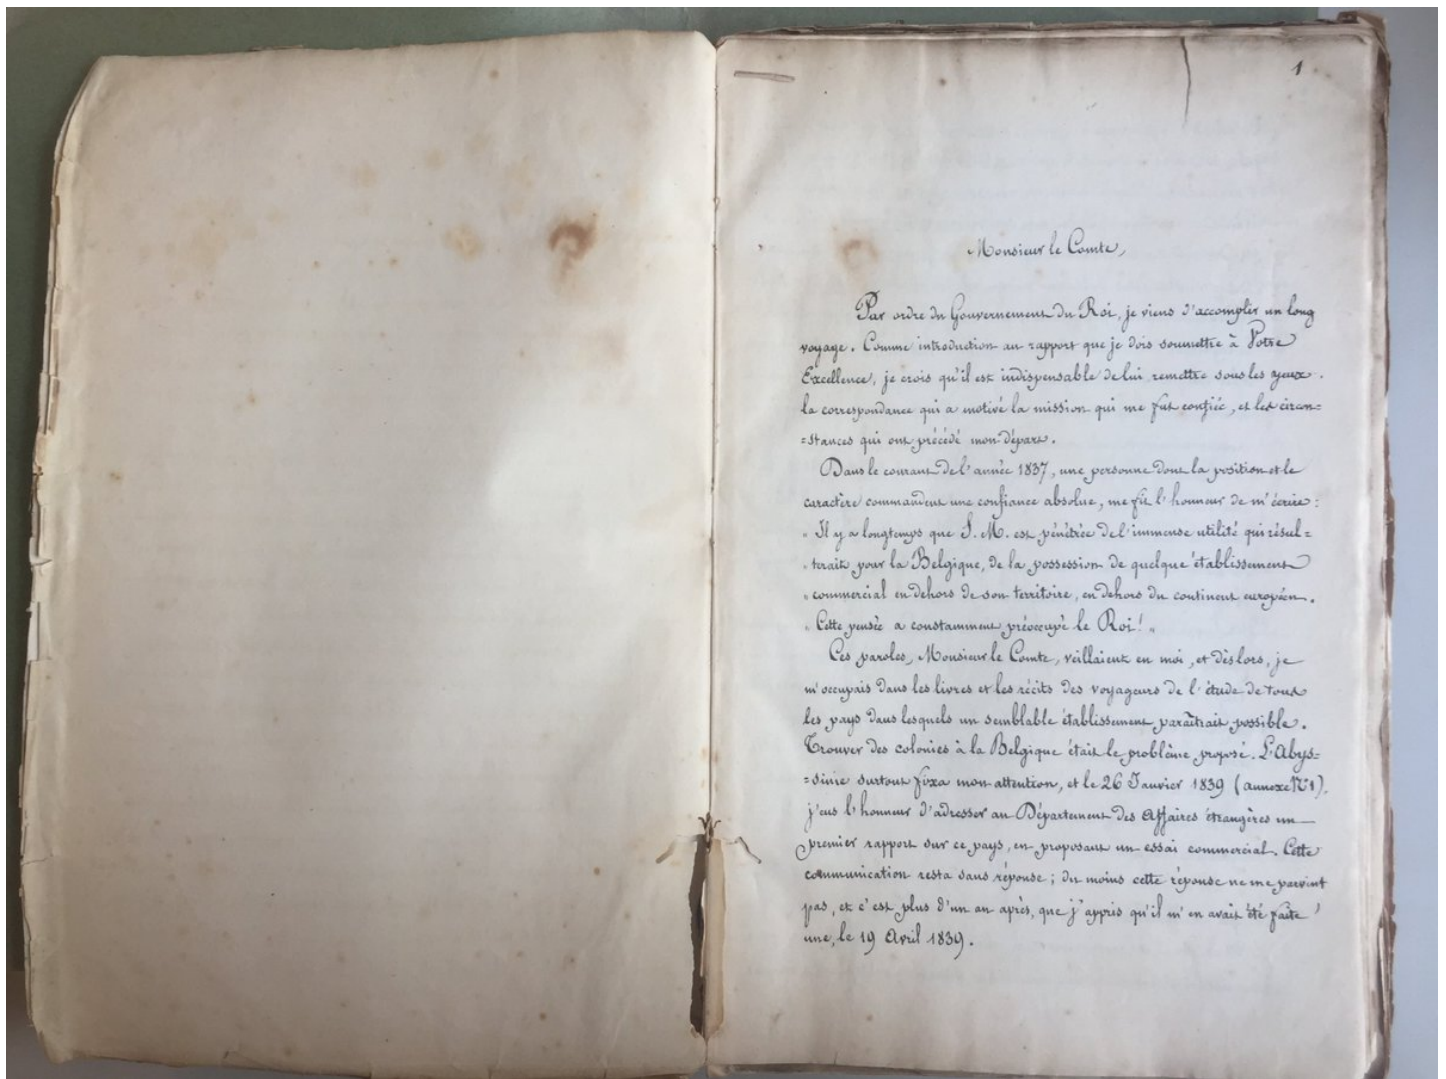 1
Monsieur le Comte,
Par ordre du Gouvernement du Roi, je viens d'accomplir un long
voyage. Comme introduction au rapport que je dois soumettre à Votre
Excellence, je crois qu'il est indispensable de lui remettre sous les yeux
la correspondance qui a motivé la mission qui me fut confiée, et les circon=
=stances qui ont précédé mon départ.
Dans le courant de l'année 1837, une personne dont la position et le
caractère commandent une confiance absolue, me fit l'honneur de m'écrire:
" Il y a longtemps que S. M. est pénétrée de l'immense utilité qui résul=
" terait pour la Belgique, de la possession de quelque établissement
" commercial en dehors de son territoire, en dehors du continent européen.
" Cette pensée a constamment préoccupé le Roi! "
Ces paroles, Monsieur le Comte, veillaient en moi, et dès lors, je
m'occupais dans les livres et les récits des voyageurs de l'étude de tous
les pays dans lesquels un semblable établissement paraîtrait possible.
Trouver des colonies à la Belgique était le problème proposé. L'Abys=
=sinie surtout fixa mon attention, et le 26 Janvier 1839 (annexe N°1).
j'eus l'honneur d'adresser au Département des Affaires étrangères un
premier rapport sur ce pays, en proposant un essai commercial. Cette
communication resta sans réponse; du moins cette réponse ne me parvint
pas, et c'est plus d'un an après, que j'appris qu'il m'en avait été faite
une, le 19 Avril 1839.